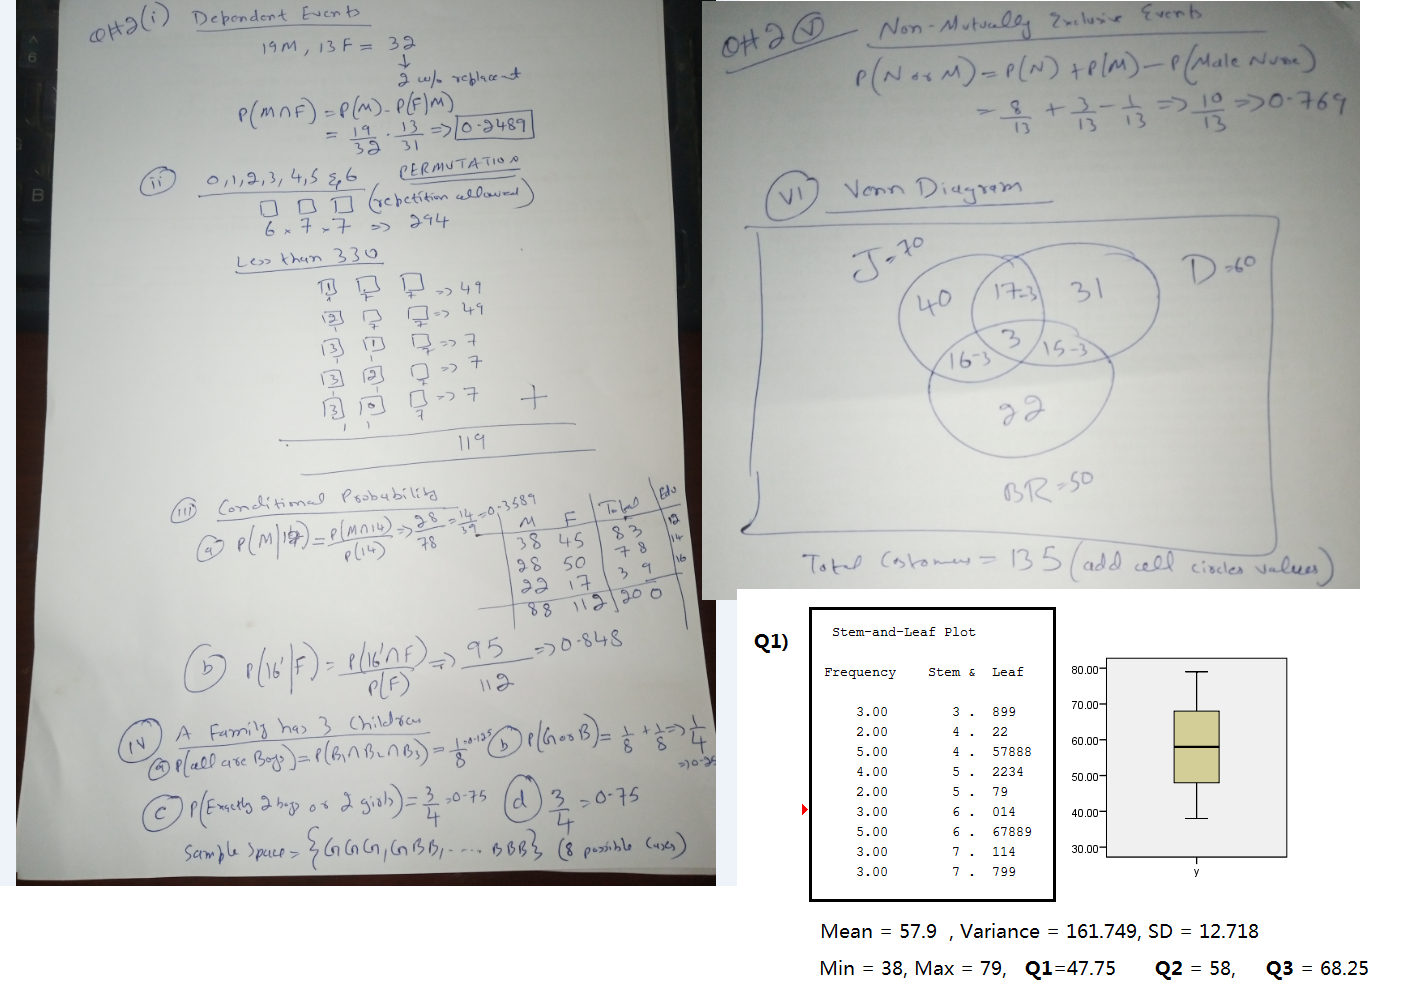 QH2(i) Dependent Events
19M, 13F = 32
↓
2 w/o replacent
P(M∩F) = P(M) . P(F|M)
= 19/32 . 13/31 => 0.2489
ii 0,1,2,3,4,5 & 6 PERMUTATION
(repetition allowed)
6 x 7 x 7 => 294
Less than 330
1 => 49
1 7 7
2 => 49
1 7 7
3 1 => 7
1 1 7
3 2 => 7
1 1 7
3 0 => 7 +
1 1 7
119
iii Conditional Probability
a P(M|14) = P(M∩14)/P(14) => 28/78 = 14/39 = 0.3589
M F Total Edu
38 45 83 12
28 50 78 14
22 17 39 16
88 112 200
b P(16'|F) = P(16'∩F)/P(F) => 95/112 => 0.848
iv A Family has 3 Children
a P(all are Boys) = P(B1∩B2∩B3) = 1/8 = 0.125 b P(G or B) = 1/8 + 1/8 => 1/4 => 0.25
c P(Exactly 2 boys or 2 girls) = 3/4 = 0.75 d 3/4 = 0.75
Sample Space = {GGG, GBB, .... BBB} (8 possible Cases)
QH2 V Non-Mutually Exclusive Events
P(N or M) = P(N) + P(M) - P(Male Nurse)
= 8/13 + 3/13 - 1/13 => 10/13 => 0.769
VI Venn Diagram
J=70
D=60
40 17-3 31
3
16-3 15-3
22
BR=50
Total Customers = 135 (add all circles values)
Q1)
Stem-and-Leaf Plot
Frequency Stem & Leaf
3.00 3 . 899
2.00 4 . 22
5.00 4 . 57888
4.00 5 . 2234
2.00 5 . 79
3.00 6 . 014
5.00 6 . 67889
3.00 7 . 114
3.00 7 . 799
80.00
70.00
60.00
50.00
40.00
30.00
y
Mean = 57.9 , Variance = 161.749, SD = 12.718
Min = 38, Max = 79, Q1=47.75 Q2 = 58, Q3 = 68.25